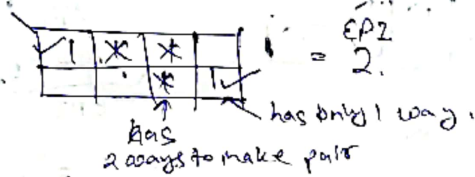 EPI
1 * * = 2.
* 1 ✓
has only 1 way.
has
2 ways to make pair